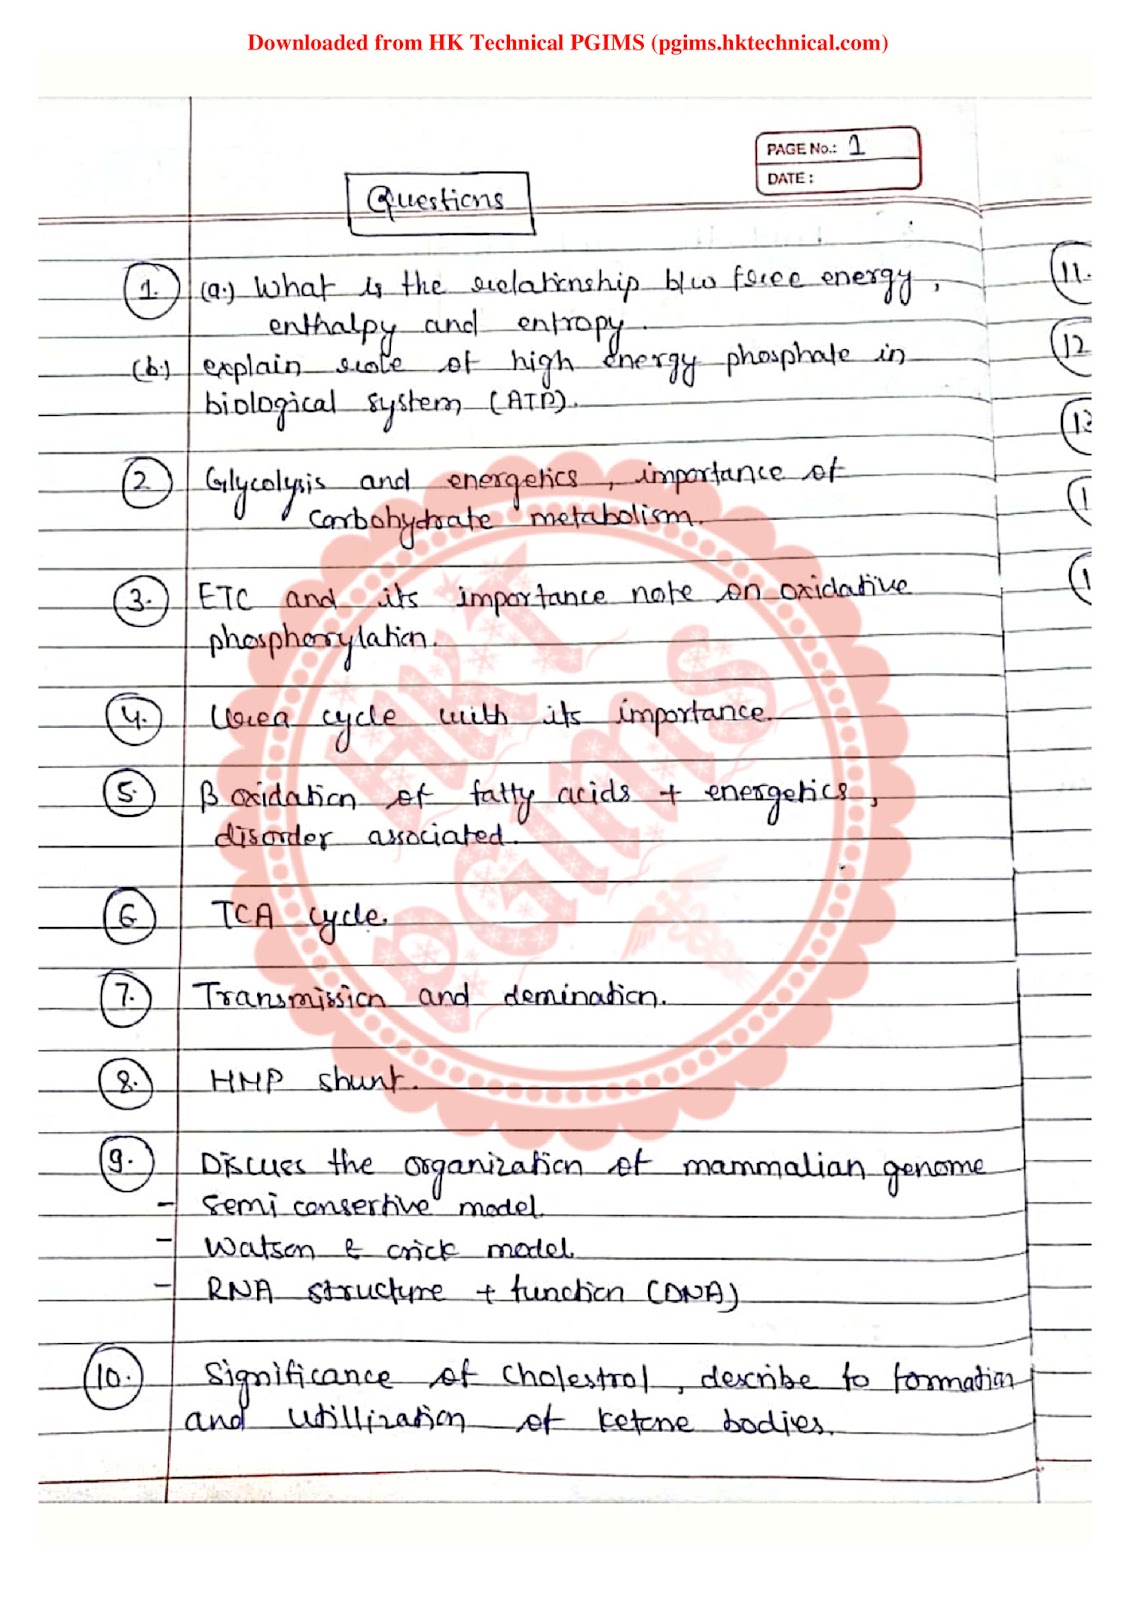 Downloaded from HK Technical PGIMS (pgims.hktechnical.com)
PAGE No.: 1
DATE :
Questions
1. (a.) What is the relationship b/w free energy,
enthalpy and entropy.
(b.) explain role of high energy phosphate in
biological system (ATP).
2 Glycolysis and energetics, importance of
carbohydrate metabolism.
3. ETC and its importance note on oxidative
phosphorylation.
4. Urea cycle with its importance.
5. β oxidation of fatty acids + energetics,
disorder associated.
6. TCA cycle.
7. Transmission and demination.
8. HMP shunt.
9. Discuss the organization of mammalian genome
- Semi consertive model.
- Watson & crick model.
- RNA structure + function (DNA)
10. Significance of Cholestrol, describe to formation
and utillization of ketone bodies.
11.
12
13
HKT
PGIMS